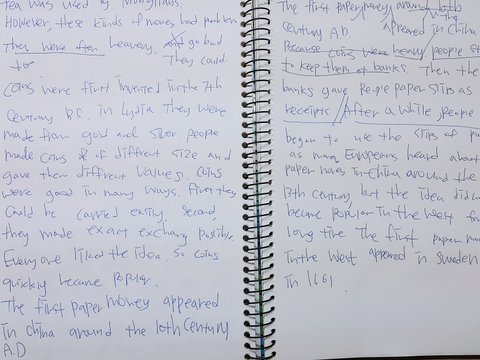 tea was used by Mongolians.
However, these kinds of money had problem
they were often heavery, and go bad
to They could
Coins were first invented in the 7th
Century B.C. in Lydia They were
made from gold and silver. people
made coins of diffrent size and
gave them diffrent values. coins
were good in many ways. First they
Could be carried easily. Second,
they made exact exchang possible
Everyone liked the idea, so coins
quickly became popular.
The first paper money appeared
in china around the 10th Century
A.D
The first paper money around 10th
the
Century A.D. appeared in China
Because coins were heavy, people st
to keep them at banks. Then the
banks gave people paper slips as
receipts / After a while people
began to use the slips of pa
as mony Europeans heard about
paper money in China around the
13th century, but the idea did n
became popular in the west for
long time The first paper mon
in the west appeared in Sweden
in 1661.